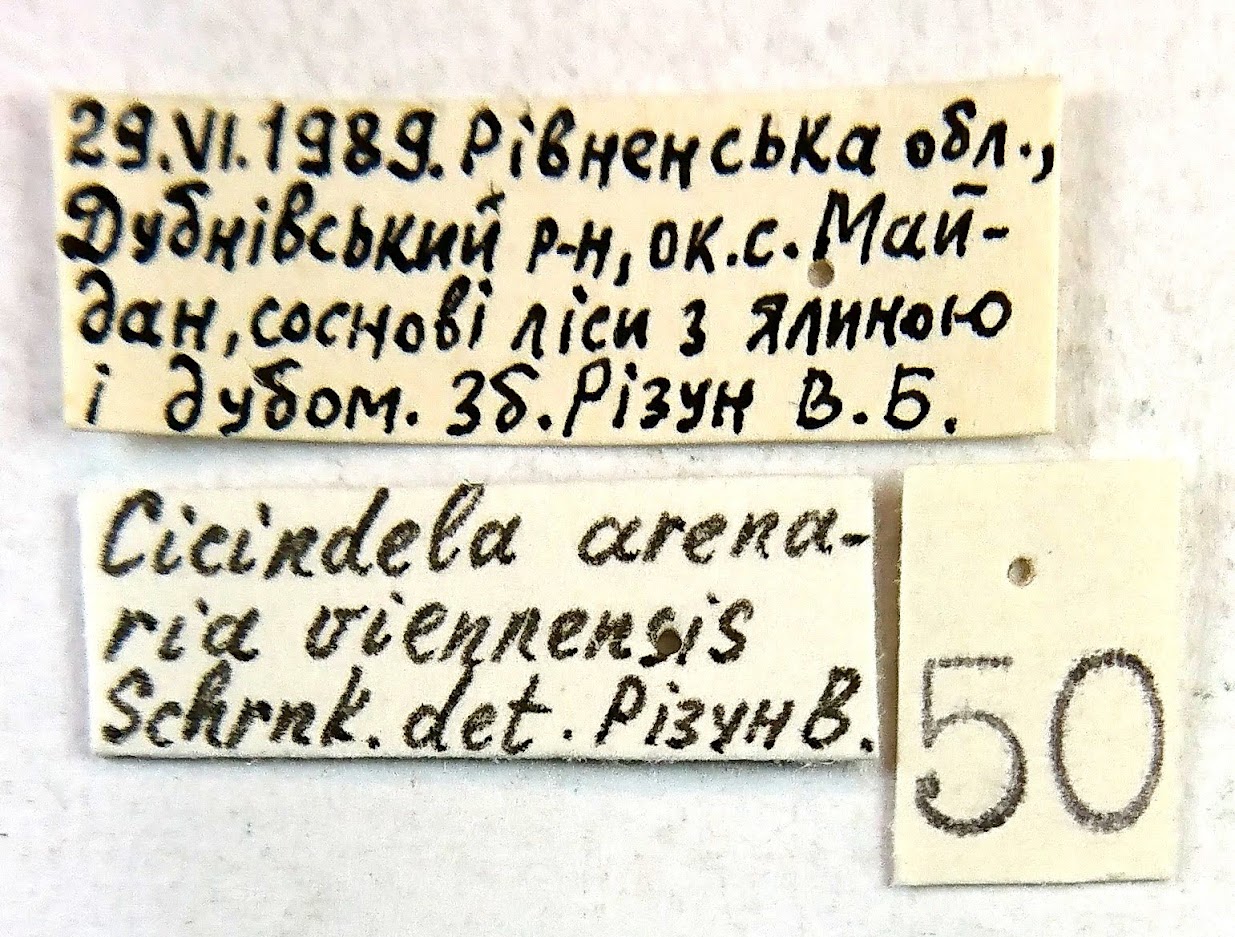 29.VI.1989. Рівненська обл.,
Дубнівський р-н, ок.с. Май-
дан, соснові ліси з ялиною
і дубом. Зб. Різун В.Б.
Cicindela arena-
ria viennensis
Schrnk. det. Різун В.
50